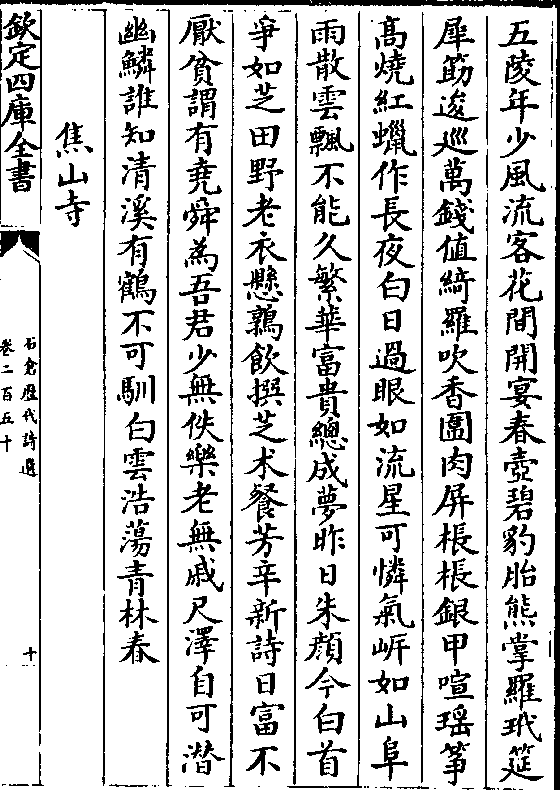 五陵年少風流客花間開宴春壺碧豹胎熊掌羅玳筵
犀筯逡巡萬錢值綺羅吹香圍肉屏棖棖銀甲喧瑶筝
髙燒紅蠟作長夜白日過眼如流星可憐氣岍如山阜
雨散雲飄不能久繁華富貴總成夢昨日朱顔今白首
爭如芝田野老衣懸鶉飲撰芝朮餐芳辛新詩日富不
厭貧謂有堯舜為吾君少無佚樂老無戚尺澤自可潜
幽鱗誰知清溪有鶴不可馴白雲浩蕩青林春
焦山寺
欽定四庫全書
石倉歴代詩選
卷二百五十
十